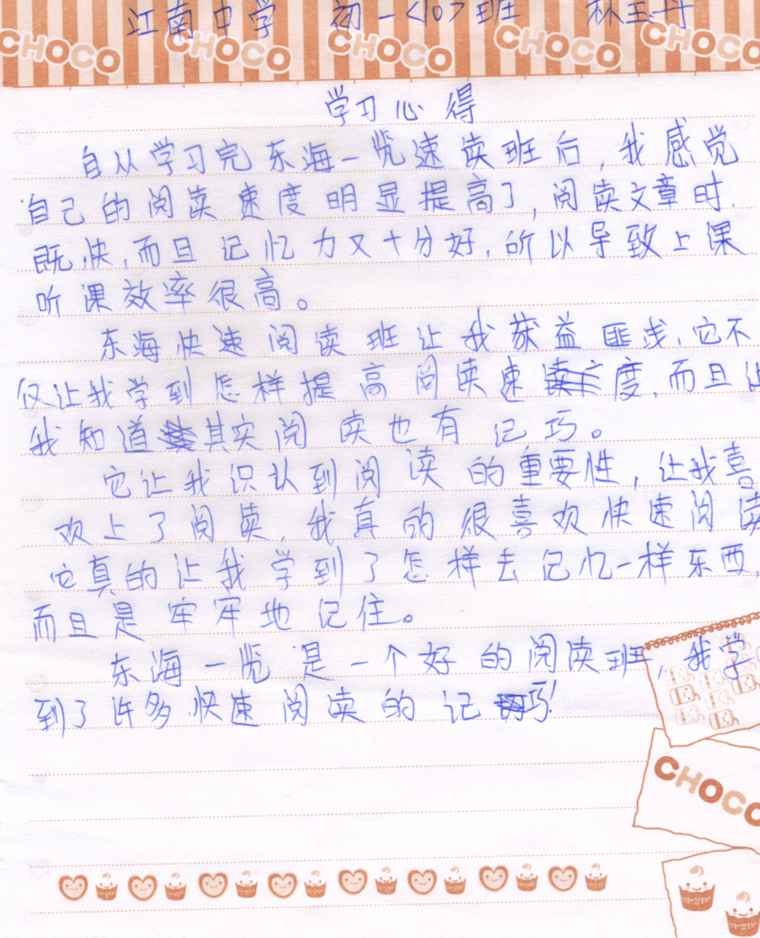 江南中学 初一<10>班 林玉丹
CHOCO CHOCO CHOCO CHOCO CHOCO
学习心得
自从学习完东海一览速读班后,我感觉
自己的阅读速度明显提高了,阅读文章时.
既快,而且记忆力又十分好,所以导致上课
听课效率很高。
东海快速阅读班让我获益匪浅,它不
仅让我学到怎样提高阅读速度,而且让
我知道其实阅读也有记巧。
它让我识认到阅读的重要性,让我喜
欢上了阅读,我真的很喜欢快速阅读
它真的让我学到了怎样去记忆一样东西,
而且是牢牢地记住。
东海一览是一个好的阅读班,我学
到了许多快速阅读的记巧!
CHOCO